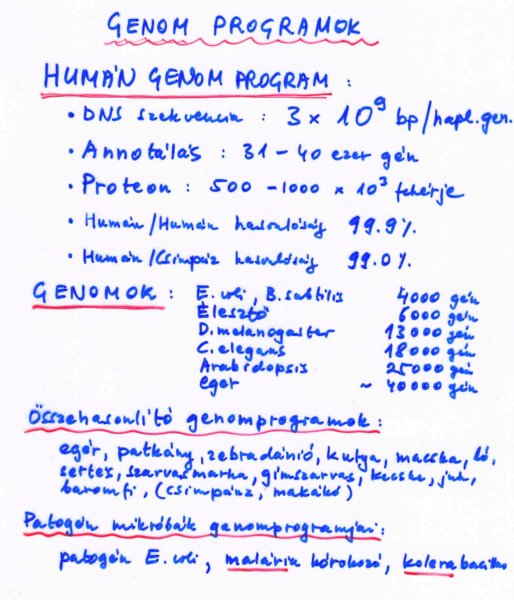 GENOM PROGRAMOK
HUMÁN GENOM PROGRAM :
• DNS szekvencia : 3 × 10⁹ bp/hapl. gen.
• Annotálás : 31 – 40 ezer gén
• Proteon : 500 – 1000 × 10³ fehérje
• Humán/Humán hasonlóság 99.9%.
• Humán/Csimpánz hasonlóság 99.0%.
GENOMOK : E. coli, B. subtilis 4000 gén
Élesztő 6000 gén
D. melanogaster 13000 gén
C. elegans 18000 gén
Arabidopsis 25000 gén
egér ~ 40000 gén
Összehasonlító genomprogramok :
egér, patkány, zebradánió, kutya, macska, ló,
sertés, szarvasmarha, gímszarvas, kecske, juh,
baromfi, (csimpánz, makákó)
Patogén mikróbák genomprogramjai :
patogén E. coli, malária kórokozó, kolera